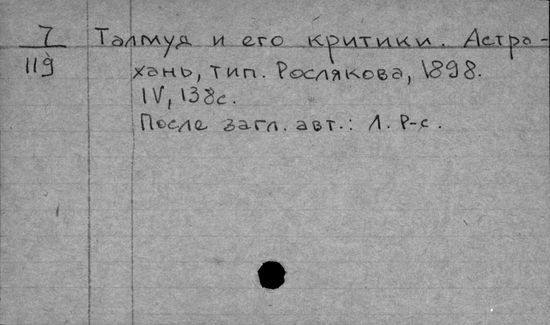 7 Талмуд и его критики. Астра-
119 хань, тип. Рослякова, 1898.
IV, 138с.
После загл. авт.: Л. Р-с.